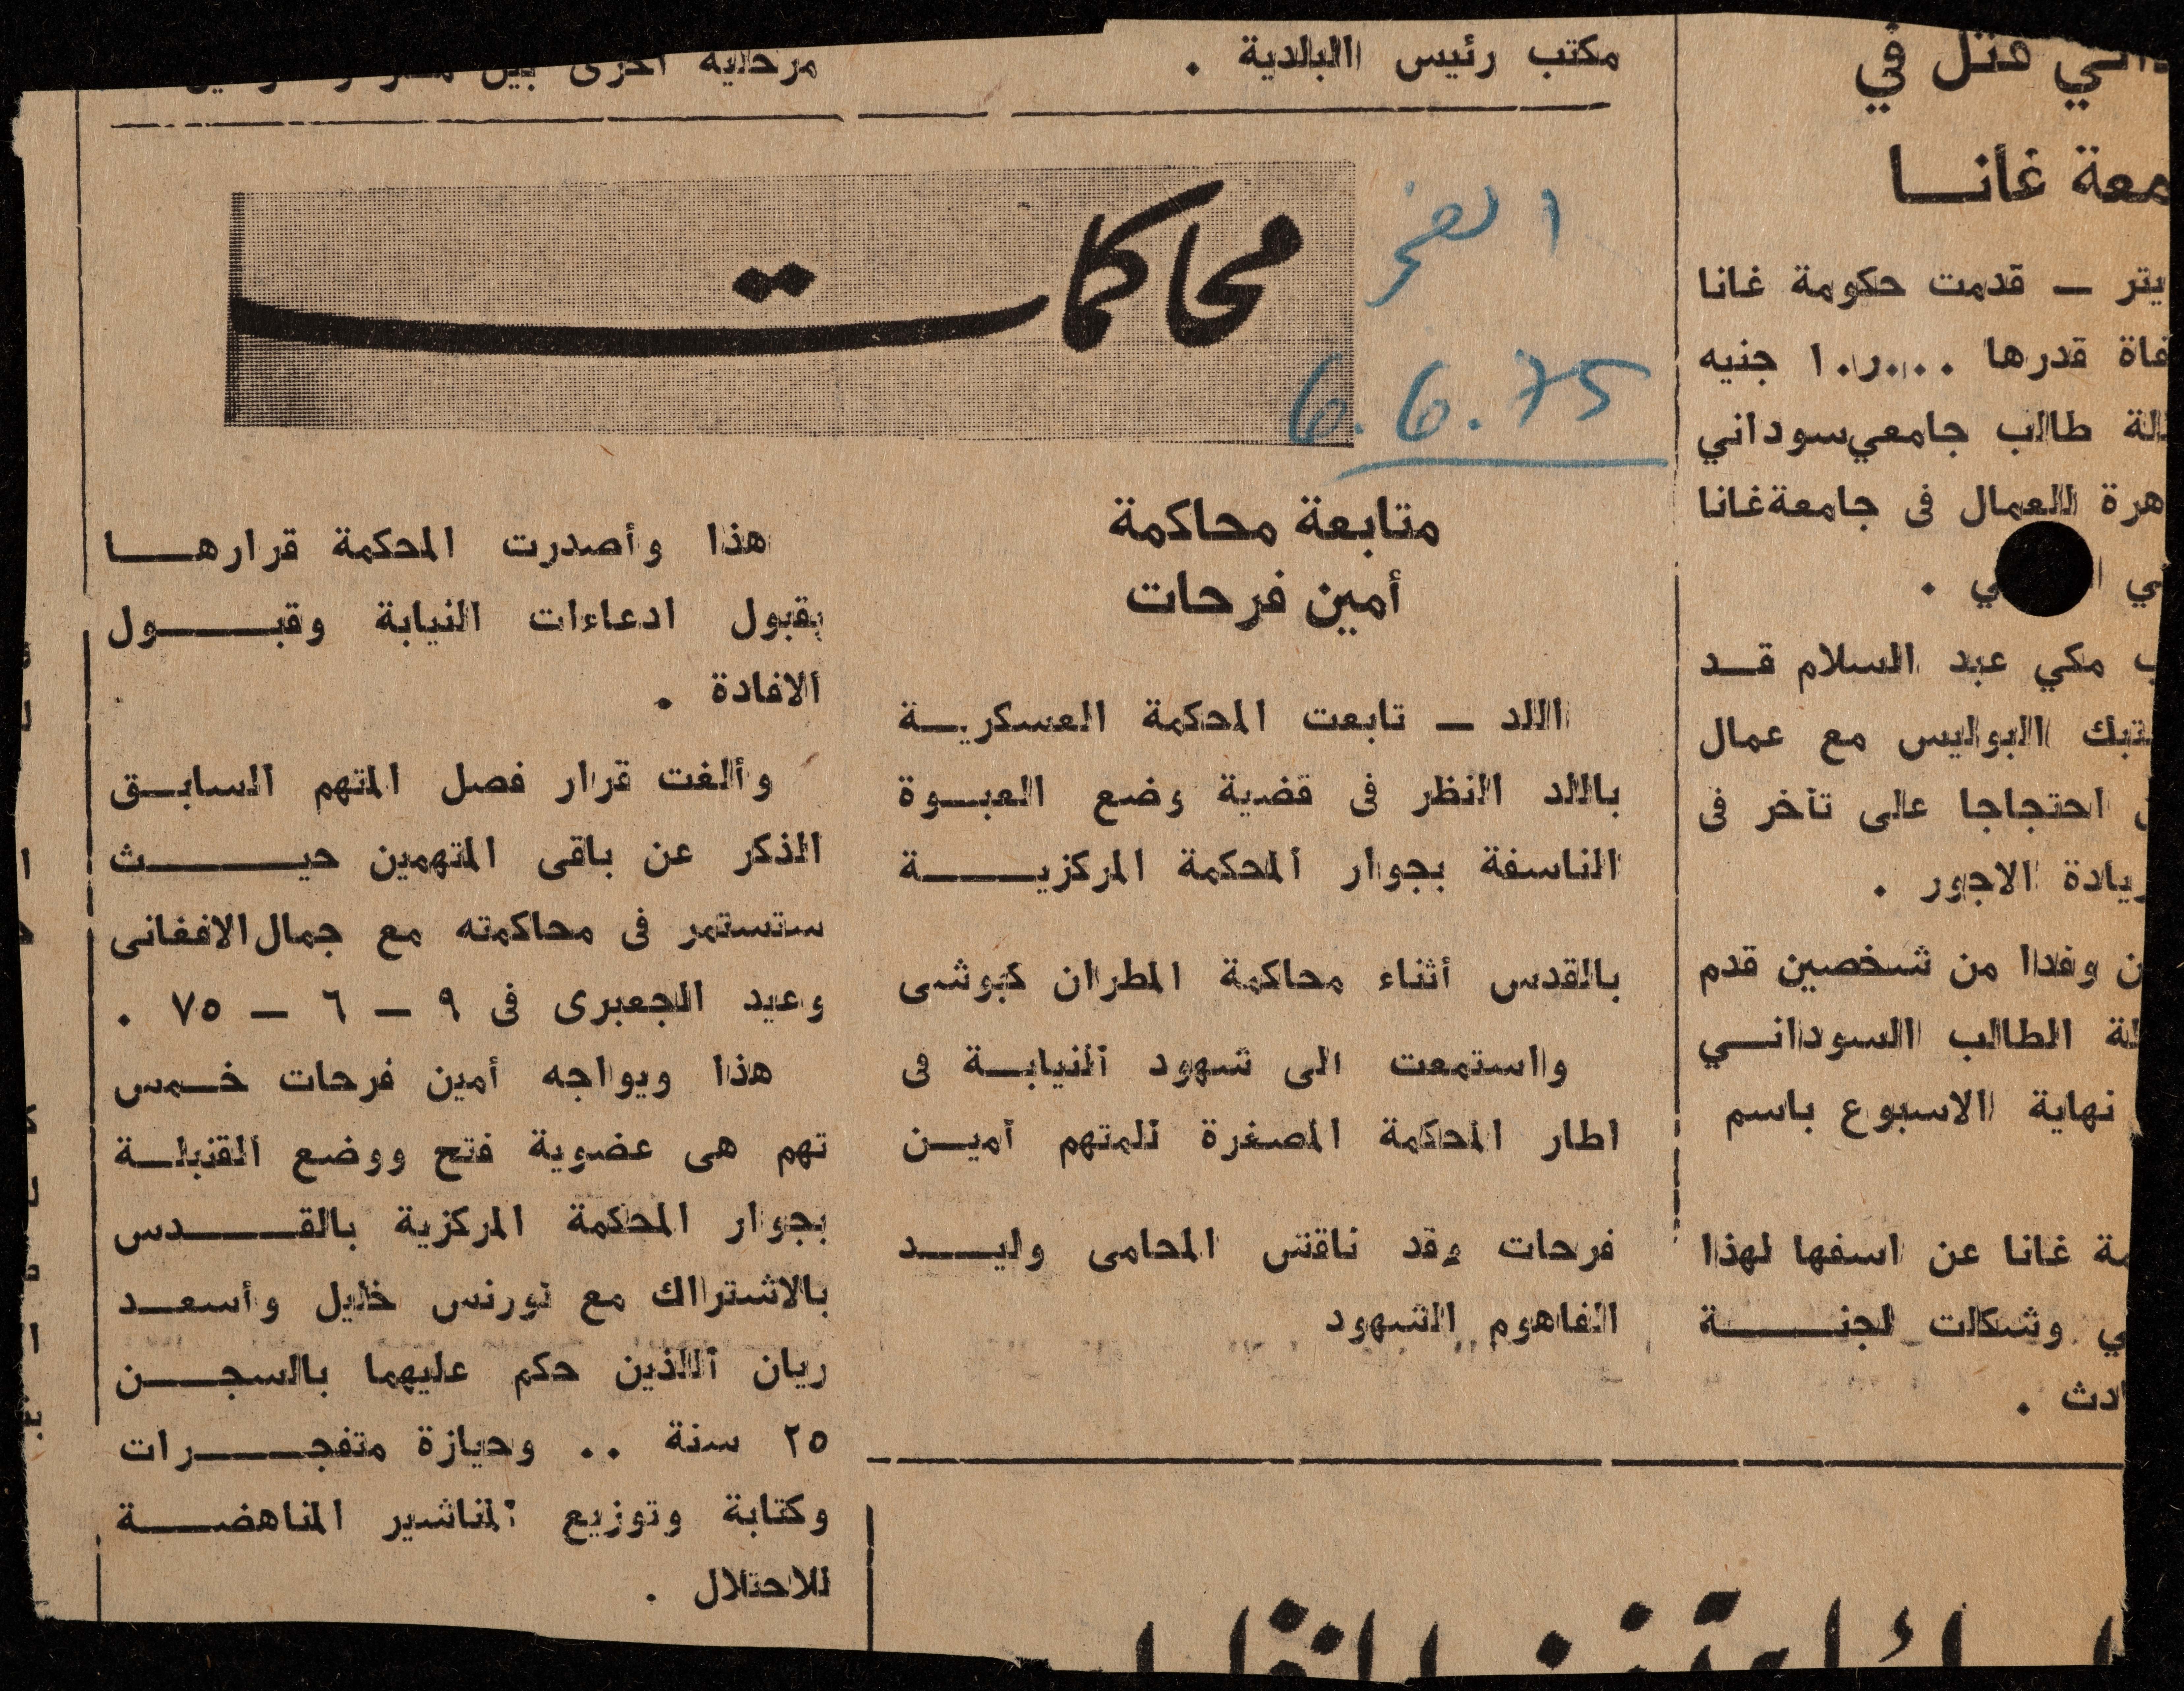 اني قتل في
معة غانـــا
يتر — قدمت حكومة غانا
فاة قدرها ١٠ر٠٠٠ جنيه
طالب جامعي سوداني
هرة للعمال فى جامعة غانا
ي .
مكي عبد السلام قــد
البوليس مع عمال
احتجاجا على تأخر فى
زيادة الاجور .
ن وفدا من شخصين قدم
الطالب السودانــي
نهاية الاسبوع باسم
مة غانا عن اسفها لهذا
ي وشكلت لجنــــة
ادث .
مكتب رئيس البلدية .
مرحلية اخرى بين
محاكمات
الفجر
6.6.75
متابعة محاكمة
أمين فرحات
اللد — تابعت المحكمة العسكريــة
باللد النظر فى قضية وضع العبــوة
الناسفة بجوار المحكمة المركزيــــة
بالقدس أثناء محاكمة المطران كبوشى
واستمعت الى شهود النيابــة فى
اطار المحكمة المصغرة للمتهم أميــن
فرحات وقد ناقش المحامى وليـــد
الفاهوم الشهود
هذا وأصدرت المحكمة قرارهــا
بقبول ادعاءات النيابة وقبـــول
الافادة .
وألغت قرار فصل المتهم السابــق
الذكر عن باقى المتهمين حيـــــث
ستستمر فى محاكمته مع جمال الافغانى
وعيد الجعبرى فى ٩ — ٦ — ٧٥ .
هذا ويواجه أمين فرحات خــمس
تهم هى عضوية فتح ووضع القنبلــة
بجوار المحكمة المركزية بالقــــدس
بالاشتراك مع نورنس خليل وأسعــد
ريان اللذين حكم عليهما بالسجــن
٢٥ سنة .. وحيازة متفجــــرات
وكتابة وتوزيع المناشير المناهضــــة
للاحتلال .